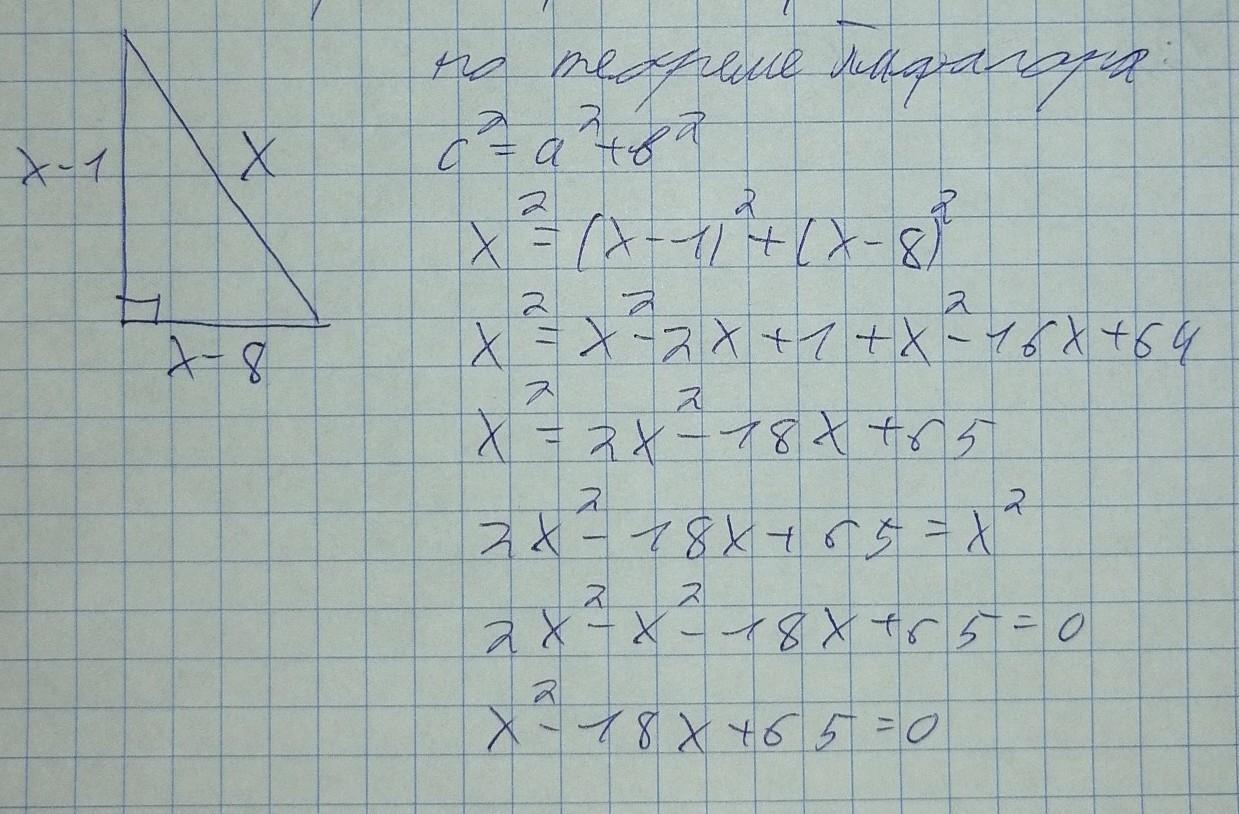 x-1
x
x-8
по теореме Пифагора:
c²=a²+b²
x²=(x-1)²+(x-8)²
x²=x²-2x+1+x²-16x+64
x²=2x²-18x+65
2x²-18x+65=x²
2x²-x²-18x+65=0
x²-18x+65=0